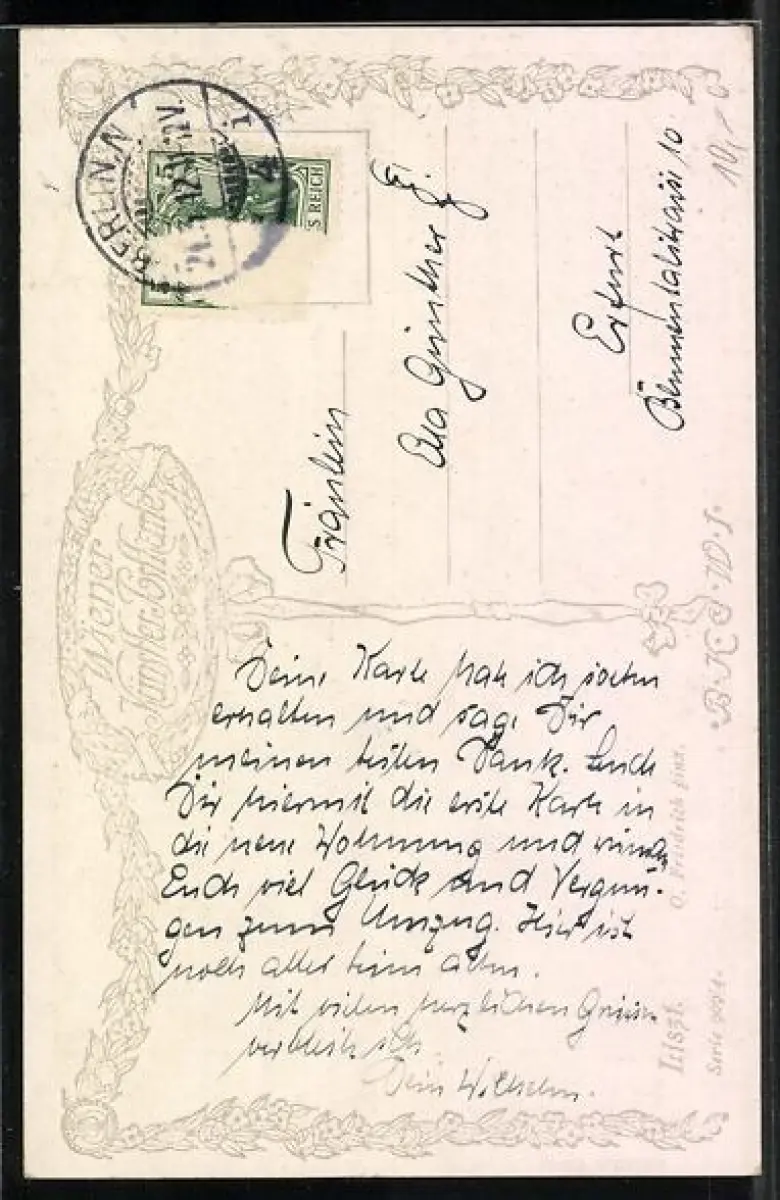 BERLIN.N
4
12
S REICH
10,-
Fräulein
Eva Günther
Erfurt
Blumenthalstrasse 10
Wiener
Künstler-Postkarte
B.K.W.I.
Deine Karte hab ich soeben
erhalten und sage Dir
meinen besten Dank. Sende
Dir hiermit die erste Karte in
die neue Wohnung und wünsche
Euch viel Glück und Vergnü-
gen zum Umzug. Hier ist
noch alles beim alten.
Mit vielen herzlichen Grüssen
verbleib ich
Dein Wilhelm.
O. Friedrich pinx.
Liszt.
Serie